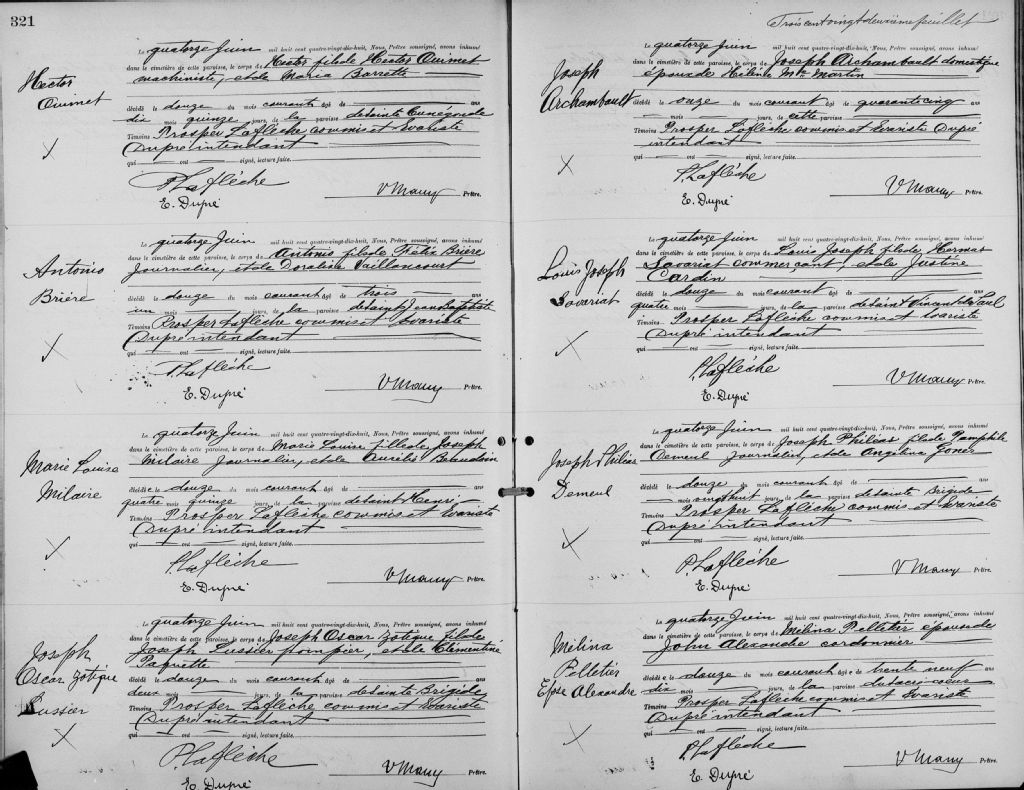 321
Hector
Ouimet
Le quatorze Juin mil huit cent quatre-vingt-dix-huit, Nous, Prêtre soussigné, avons inhumé
dans le cimetière de cette paroisse, le corps de Hector fils de Hector Ouimet
machiniste, et de Maria Barrette
décédé le douze du mois courant âgé de ans
dix mois quinze jours, de la paroisse de Sainte Cunégonde
Témoins Prosper Laflèche commis et Evariste
Dupré intendant
qui ont signé, lecture faite.
P. Laflèche
E. Dupré
Prêtre.
Antonio
Brière
Le quatorze Juin mil huit cent quatre-vingt-dix-huit, Nous, Prêtre soussigné, avons inhumé
dans le cimetière de cette paroisse, le corps de Antonio fils de Félix Brière
Journalier, et de Doralice Vaillancourt
décédé le douze du mois courant âgé de trois ans
un mois jours, de la paroisse de Saint Jean Baptiste
Témoins Prosper Laflèche commis et Evariste
Dupré intendant
qui ont signé, lecture faite.
P. Laflèche
E. Dupré
Prêtre.
Marie Louise
Milaire
Le quatorze Juin mil huit cent quatre-vingt-dix-huit, Nous, Prêtre soussigné, avons inhumé
dans le cimetière de cette paroisse, le corps de Marie Louise fille de Joseph
Milaire Journalier, et de Aurélie Beaudoin
décédée le douze du mois courant âgé de ans
quatre mois quinze jours, de la paroisse de Saint Henri
Témoins Prosper Laflèche commis et Evariste
Dupré intendant
qui ont signé, lecture faite.
P. Laflèche
E. Dupré
Prêtre.
Joseph
Oscar Zotique
Lussier
Le quatorze Juin mil huit cent quatre-vingt-dix-huit, Nous, Prêtre soussigné, avons inhumé
dans le cimetière de cette paroisse, le corps de Joseph Oscar Zotique fils de
Joseph Lussier pompier, et de Clémentine
Paquette
décédé le douze du mois courant âgé de ans
deux mois jours, de la paroisse de Sainte Brigide
Témoins Prosper Laflèche commis et Evariste
Dupré intendant
qui ont signé, lecture faite.
P. Laflèche
E. Dupré
Prêtre.
Trois cent vingt deuxième feuillet
Joseph
Archambault
Le quatorze Juin mil huit cent quatre-vingt-dix-huit, Nous, Prêtre soussigné, avons inhumé
dans le cimetière de cette paroisse, le corps de Joseph Archambault domestique
époux de Hélène Martin
décédé le onze du mois courant âgé de quarante cinq ans
mois jours, de cette paroisse
Témoins Prosper Laflèche commis et Evariste Dupré
intendant
qui ont signé, lecture faite.
P. Laflèche
E. Dupré
Prêtre.
Louis Joseph
Savariat
Le quatorze Juin mil huit cent quatre-vingt-dix-huit, Nous, Prêtre soussigné, avons inhumé
dans le cimetière de cette paroisse, le corps de Louis Joseph fils de Hermas
Savariat commerçant, et de Justine
Cardin
décédé le douze du mois courant âgé de ans
quatre mois jours, de la paroisse de Saint Vincent de Paul
Témoins Prosper Laflèche commis et Evariste
Dupré intendant
qui ont signé, lecture faite.
P. Laflèche
E. Dupré
Prêtre.
Joseph Philéas
Demeul
Le quatorze Juin mil huit cent quatre-vingt-dix-huit, Nous, Prêtre soussigné, avons inhumé
dans le cimetière de cette paroisse, le corps de Joseph Philéas fils de Pamphile
Demeul Journalier, et de Angélina
décédé le douze du mois courant âgé de ans
mois vingt huit jours, de la paroisse de Sainte Brigide
Témoins Prosper Laflèche commis et Evariste
Dupré intendant
qui ont signé, lecture faite.
P. Laflèche
E. Dupré
Prêtre.
Mélina
Pelletier
Epse Alexandre
Le quatorze Juin mil huit cent quatre-vingt-dix-huit, Nous, Prêtre soussigné, avons inhumé
dans le cimetière de cette paroisse, le corps de Mélina Pelletier épouse de
John Alexandre cordonnier
décédée le douze du mois courant âgée de trente neuf ans
dix mois jours, de la paroisse du Sacré coeur
Témoins Prosper Laflèche commis et Evariste
Dupré intendant
qui ont signé, lecture faite.
P. Laflèche
E. Dupré
Prêtre.